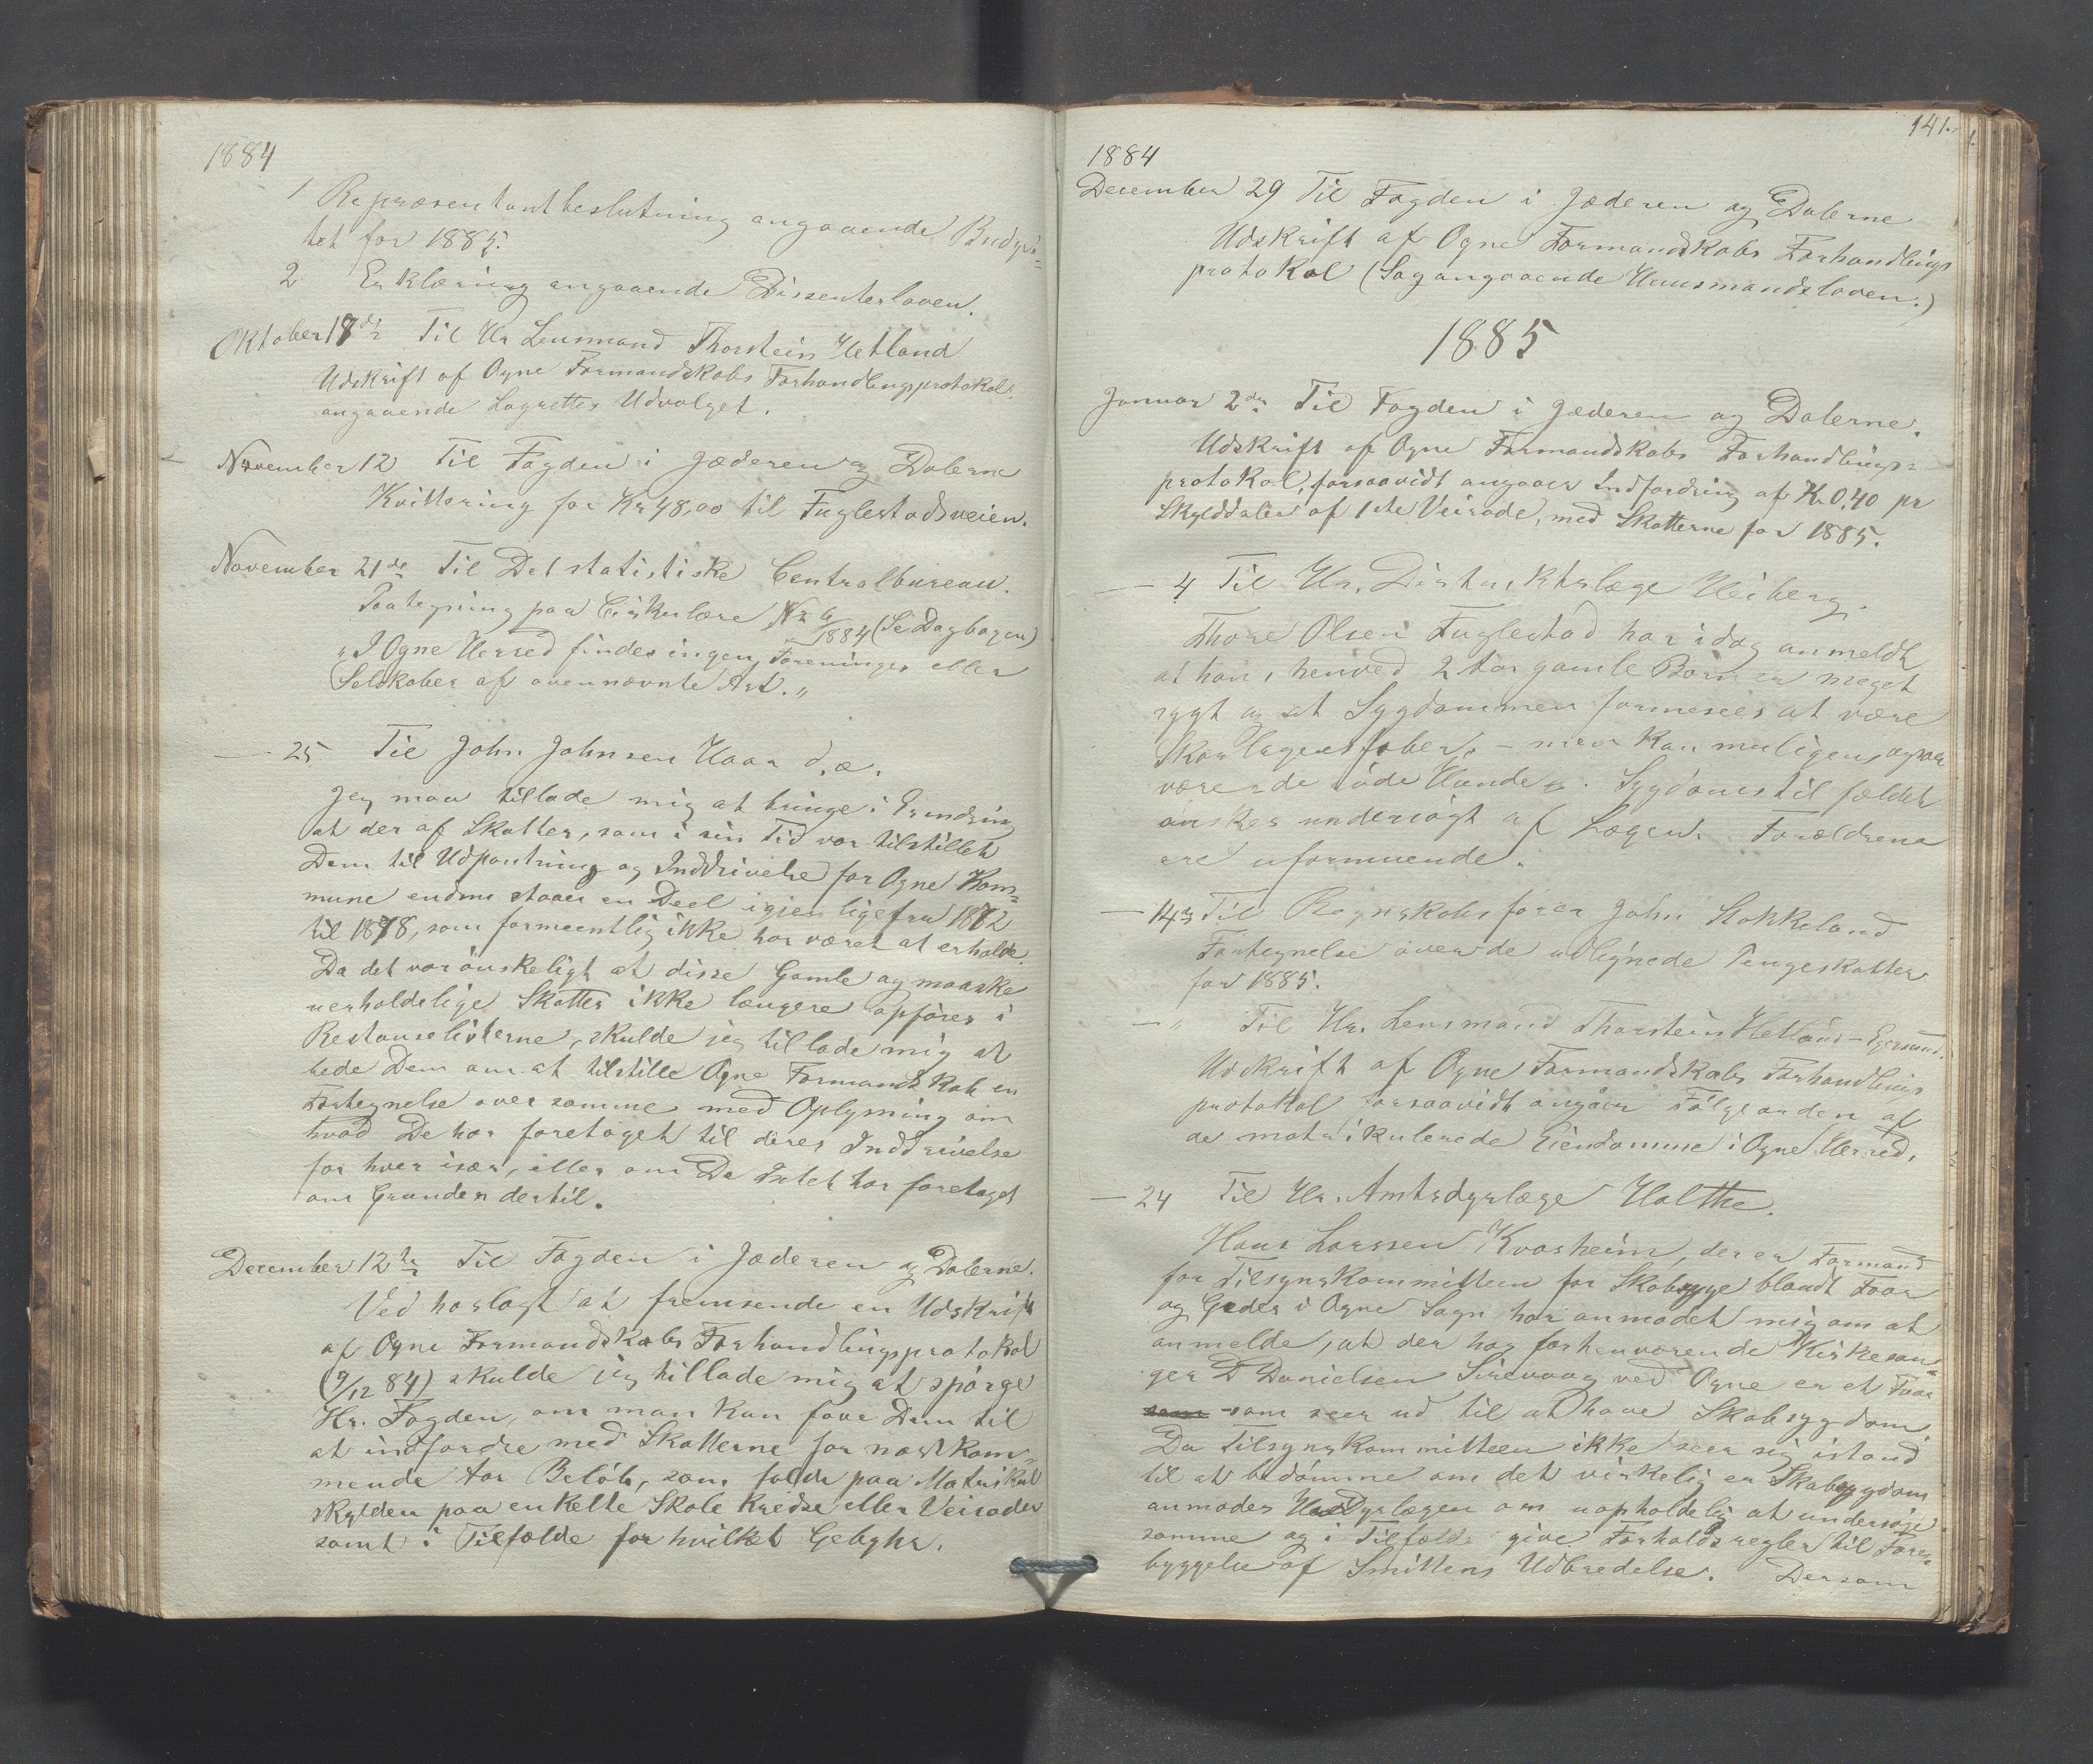 1884
1 Repræsentantbeslutning angaaende Budgé=
tet for 1885.
2 Erklæring angaaende Dissenterloven.
Oktober 18de Til Hr Lensmand Thorstein Hetland
Udskrift af Ogne Formandskabs Forhandlingsprotokol,
angaaende Lagrettes Udvalget.
November 12 Til Fogden i Jæderen og Dalerne
Kvittering for Kr 48,00 til Fuglestadsveien.
November 21de Til Det statistiske Centralbureau.
Paategning paa Cirkulære No 6
1884 (Se Dagbogen)
"I Ogne Herred findes ingen Foreninger eller
Selskaber af ovennævnte Art."
— 25 Til John Johnsen Haar d.æ.
Jeg maa tillade mig at bringe i Erindring
at der af Skatter, som i sin Tid var tilstillet
Dem til Udpantning og Inddrivelse for Ogne Kom=
mune endnu staaer en Deel igjen lige fra 1872
til 1878, som formeentlig ikke har været at erholde.
Da det var ønskeligt at disse Gamle og maaske
uerholdelige Skatter ikke længere opføres i
Restanselisterne, skulde jeg tillade mig at
bede Dem om at tilstille Ogne Formandskab en
Fortegnelse over samme med Oplysning om
hvad De har foretaget til deres Inddrivelse
for hver især, eller om De Intet har foretaget
om Grunden dertil.
December 12te Til Fogden i Jæderen og Dalerne.
Ved hoslagt at fremsende en Udskrift
af Ogne Formandskabs Forhandlingsprotokol
(9/12 84) skulde jeg tillade mig at spørge
Hr. Fogden, om man kan faae Dem til
at indfordre med Skatterne for næstkom=
mende Aar Beløb, som falde paa Matrikul
skylden paa enkelte Skolekredse eller Veiroder
samt i Tilfælde for hvilket Gebyhr.
141.
1884
December 29 Til Fogden i Jæderen og Dalerne
Udskrift af Ogne Formandskabs Forhandlings
protokol (Sag angaaende Huusmandsloven.)
1885
Januar 2den Til Fogden i Jæderen og Dalerne.
Udskrift af Ogne Formandskabs Forhandlings=
protokol, forsaavidt angaaer Indfordring af K. 0,40 pr
Skylddaler af 1ste Veirode, med Skatterne for 1885.
— 4 Til Hr. Distriktslæge Heiberg.
Thore Olsen Fuglestad har idag anmeldt
at hans henved 2 Aar gamle Barn er meget
sygt og at Sygdommen formenes at være
Skarlagensfeber, - men kan muligens ogsaa
være de røde Hunde. Sygdomstilfældet
ønskes undersøgt af Lægen. Forældrene
ere uformuende.
— 14 Til Regnskabsfører John Stokkeland
Fortegnelse over de udlignede Pengeskatter
for 1885.
— " Til Hr. Lensmand Thorstein Hetland - Egersund.
Udskrift af Ogne Formandskabs Forhandlings
protokol forsaavidt angåer Følgeorden af
de matrikulerede Eiendomme i Ogne Herred.
— 24 Til Hr. Amtsdyrlæge Holthe.
Hans Larssen Kvasheim, der er Formand
for Tilsynskommitteen for Skabsyge blandt Faar
og Geder i Ogne Sogn har anmodet mig om at
anmelde, at der hos forhenværende Kirkesan=
ger D Danielsen Sirevaag ved Ogne er et Faar
som som seer ud til at have Skabsygdom.
Da Tilsynskommitteen ikke seer sig istand
til at bedømme om det virkelig er Skabsygdom
anmodes Dyrlægen om uopholdelig at undersøge
samme og i Tilfælde give Forholdsregler til Fore=
byggelse af Smittens Udbredelse. Dersom